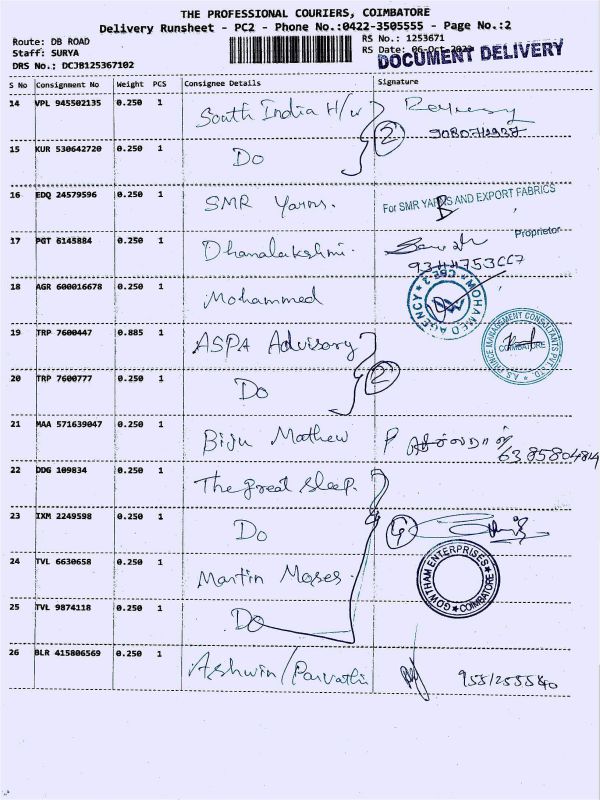 THE PROFESSIONAL COURIERS, COIMBATORE
Delivery Runsheet - PC2 - Phone No.:0422-3505555 - Page No.:2
Route: DB ROAD
RS No.: 1253671
Staff: SURYA
RS Date: 06-Oct-2023
DOCUMENT DELIVERY
DRS No.: DCJB125367102
S No Consignment No Weight PCS Consignee Details Signature
14 VPL 945502135 0.250 1 South India H/w
2
15 KUR 530642720 0.250 1 Do
16 EDQ 24579596 0.250 1 SMR Yarns.
For SMR YARNS AND EXPORT FABRICS
Proprietor
17 PGT 6145884 0.250 1 Dhanalakshmi.
18 AGR 600016678 0.250 1 Mohammed
MOHAMED AGENCY
19 TRP 7600447 0.885 1 ASPA Advisory
2
COIMBATORE
20 TRP 7600777 0.250 1 Do
21 MAA 571639047 0.250 1 Biju Mathew P
22 DDG 109834 0.250 1 The great sleep.
23 IXM 2249598 0.250 1 Do
4
24 TVL 6630658 0.250 1 Martin Moses.
GOWTHAM ENTERPRISES
COIMBATORE
25 TVL 9874118 0.250 1 Do
26 BLR 415806569 0.250 1 Ashwin/Parvathi